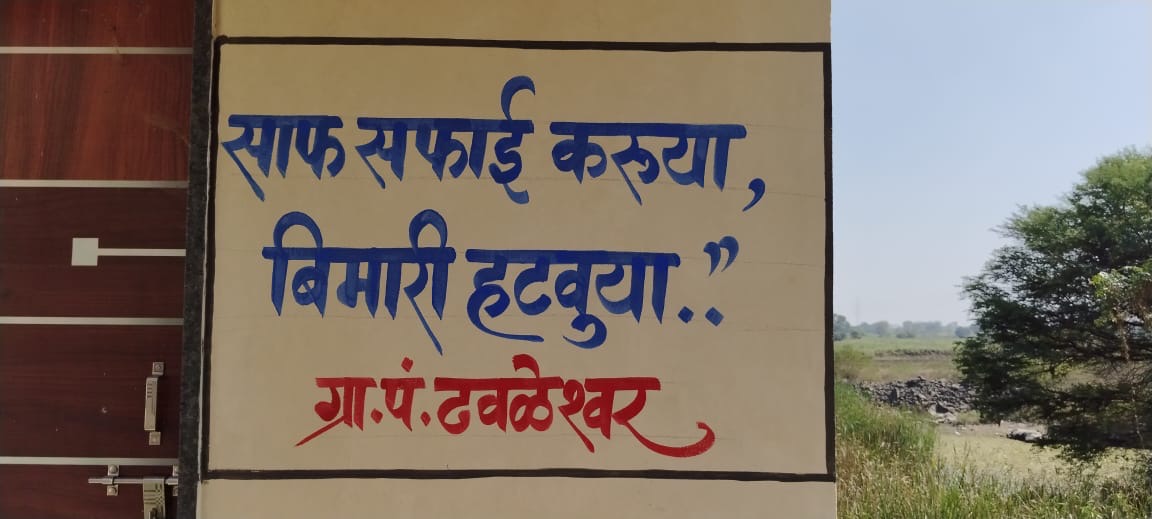 साफ सफाई करूया,
बिमारी हटवुया..”
ग्रा.पं.ढवळेश्वर